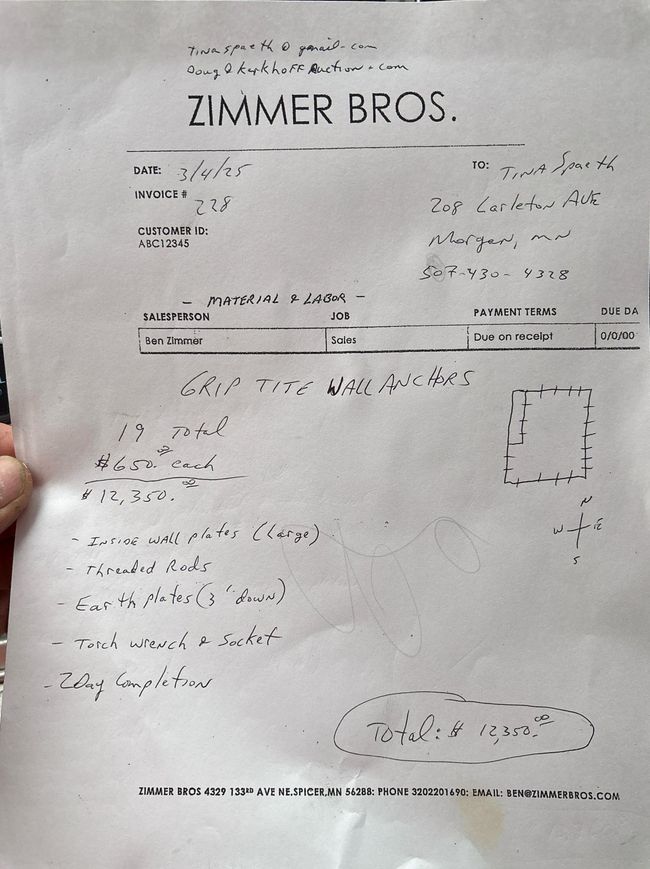 Tina spaeth @ gmail.com
Doug @ Kerkhoff Auction.com
ZIMMER BROS.
DATE: 3/4/25
TO: Tina Spaeth
INVOICE # 228
208 Carleton AVE
CUSTOMER ID:
ABC12345
Morgan, MN
507-430-4328
- MATERIAL & LABOR -
SALESPERSON JOB PAYMENT TERMS DUE DA
Ben Zimmer Sales Due on receipt 0/0/00
GRIP TITE WALL ANCHORS
19 Total
$650.00 each
$12,350.00
N
W E
S
- INSIDE WALL plates (Large)
- Threaded Rods
- Earth plates (3' down)
- Torch wrench & Socket
- 2 Day Completion
Total: $ 12,350.00
ZIMMER BROS 4329 133RD AVE NE.SPICER,MN 56288: PHONE 3202201690: EMAIL: BEN@ZIMMERBROS.COM